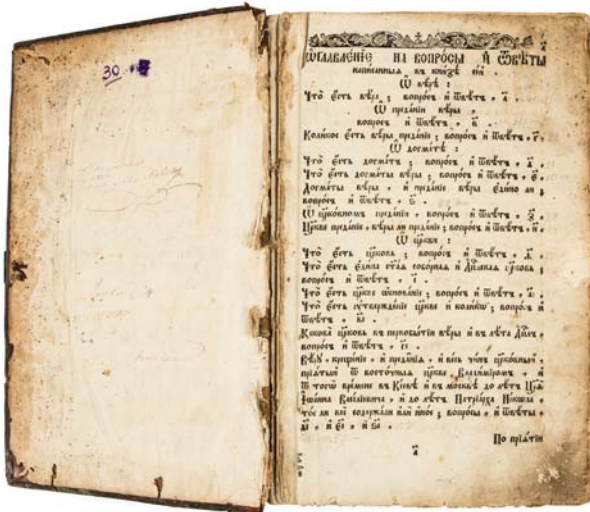 30
Ѡ҆главле́нїе на вопро́сы и҆ ѿвѣ́ты
напи́санныѧ въ кни́зѣ се́й.
Ѡ҆ вѣ́рѣ :
Что̀ є҆́сть вѣ́ра ; вопро́съ и҆ ѿвѣ́тъ . а҃ .
Ѡ҆ преда́нїи вѣ́ры .
вопро́съ и҆ ѿвѣ́тъ . в҃ .
Коли́кое є҆́сть вѣ́ры преда́нїе ; вопро́съ и҆ ѿвѣ́тъ . г҃ .
Ѡ҆ до́гматѣ :
Что̀ є҆́сть до́гматъ ; вопро́съ и҆ ѿвѣ́тъ . д҃ .
Что̀ є҆́сть до́гматы вѣ́ры ; вопро́съ и҆ ѿвѣ́тъ . є҃ .
До́гматы вѣ́ры . и҆ преда́нїе вѣ́ры є҆ди́но ли ;
вопро́съ и҆ ѿвѣ́тъ . ѕ҃ .
Ѡ҆ цр҃ко́вномъ преда́нїи . вопро́съ и҆ ѿвѣ́тъ . з҃ .
Цр҃кве преда́нїе . вѣ́ры ли преда́нїе ; вопро́съ и҆ ѿвѣ́тъ . и҃ .
Ѡ҆ цр҃кви :
Что̀ є҆́сть цр҃ковь ; вопро́съ и҆ ѿвѣ́тъ . ѳ҃ .
Что̀ є҆́сть є҆ди́на ст҃а́ѧ собо́рнаѧ и҆ а҆пⷭ҇льскаѧ цр҃ковь ;
вопро́съ и҆ ѿвѣ́тъ . і҃ .
Что̀ є҆́сть цр҃кве ѡ҆снова́нїе ; вопро́съ и҆ ѿвѣ́тъ . а҃і .
Что̀ є҆́сть ᲂу҆твержде́нїе цр҃кве и҆ коли́кѡ ; вопро́съ и҆
ѿвѣ́тъ . в҃і .
Какова̀ цр҃ковь въ первобы́тїи вѣ́ры и҆ въ лѣ́та а҆пⷭ҇лъ .
вопро́съ и҆ ѿвѣ́тъ . г҃і .
Вѣ́рꙋ . креще́нїе . и҆ преда́нїѧ . и҆ ве́сь чи́нъ цр҃ко́вный .
прїѧ́тый ѿ восто́чныѧ цр҃кве Влади́миромъ . и҆
ѿ тогѡ̀ вре́мене въ Кі́евѣ и҆ въ москвѣ̀ до лѣ́тъ Цр҃ѧ̀
І҆ѡа́нна Васи́лїевича . и҆ до лѣ́тъ Патрїа́рха Ни́кѡна .
то́ем ли всѝ содержа́ли и҆лѝ и҆но́е ; вопро́сы . и҆ ѿвѣ́ты .
д҃і . и҆ є҃і . и҆ ѕ҃і .
По прїѧ́тїи
а҃